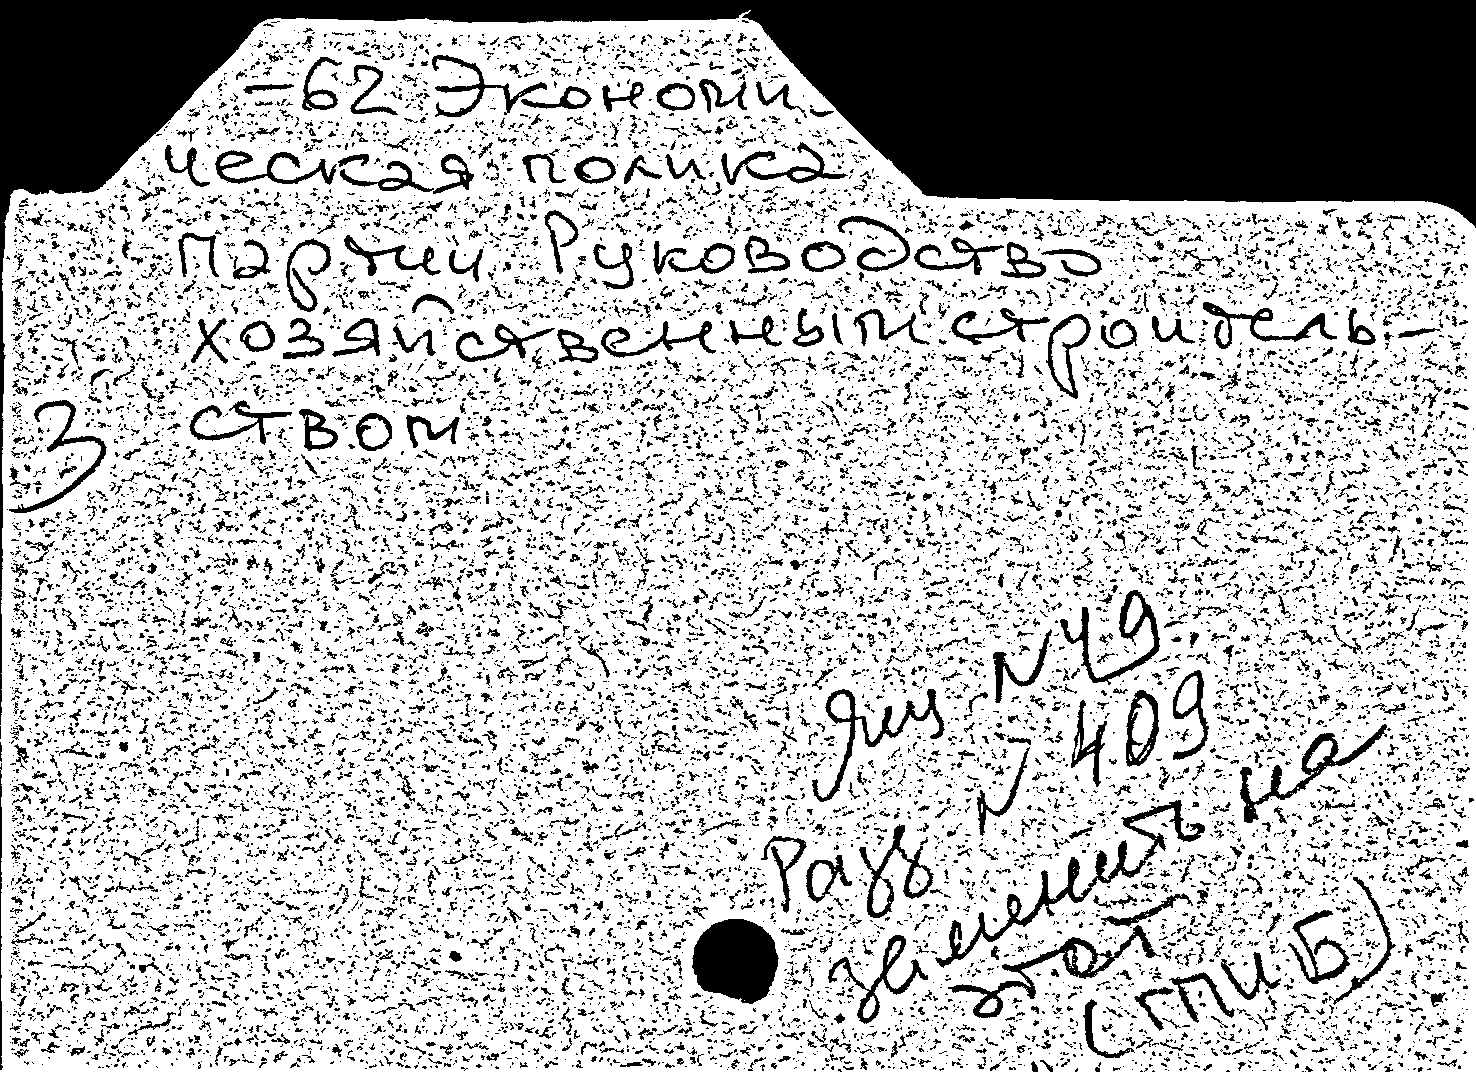 -62 Экономи-
ческая полика
партии Руководство
хозяйственным строидель-
3 ством
Ящ №49
Разд №409
заменить на
этот
(ГПИБ)